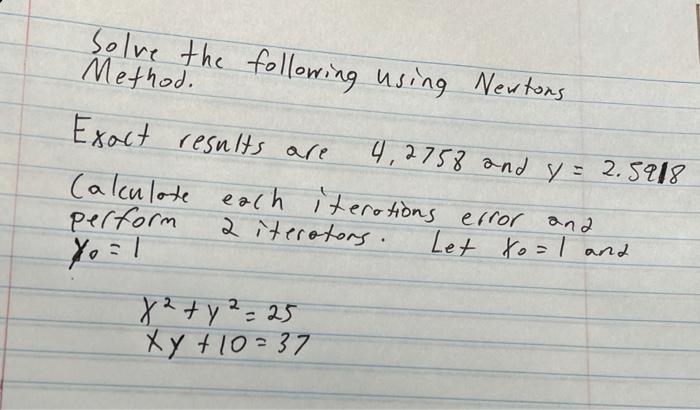 Solve the following using Newtons
Method.
Exact results are 4,2758 and y = 2.5918
Calculate each iterations error and
perform 2 iterotors. Let x₀ = 1 and
y₀ = 1
x² + y² = 25
xy + 10 = 37